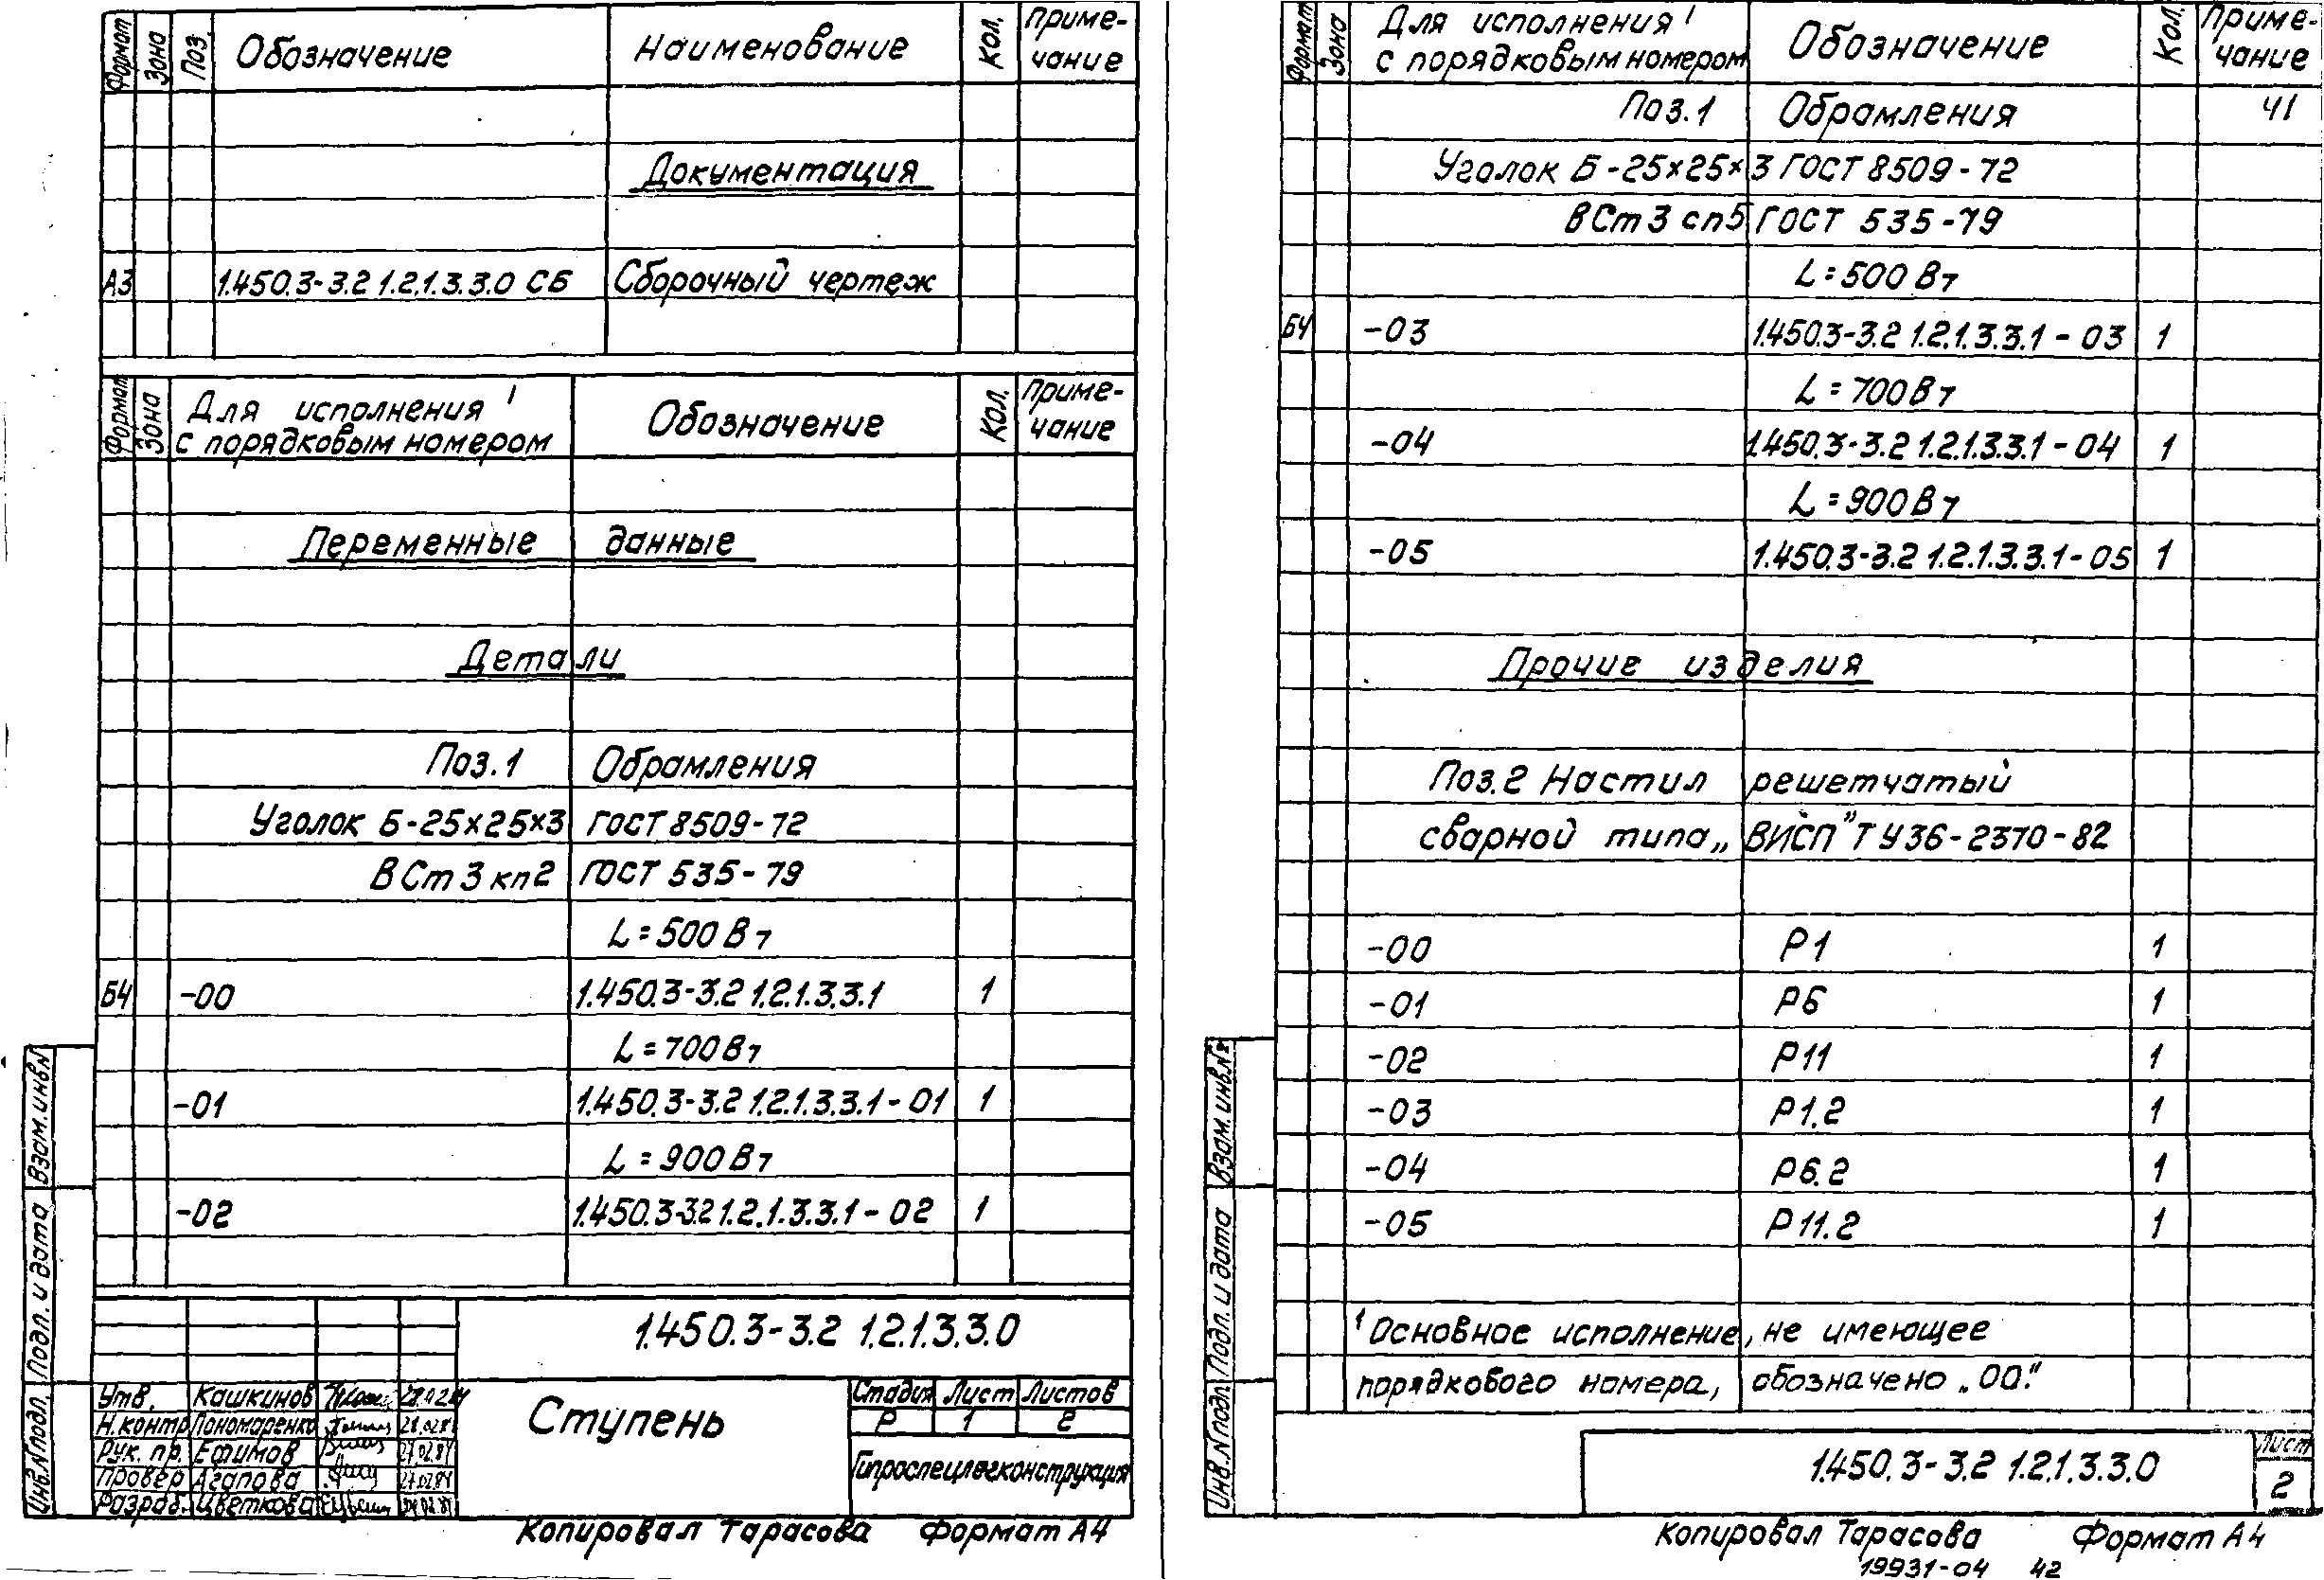 Формат Зона Поз. Обозначение Наименование Кол. Приме-
чание
Документация
А3 1.450.3-3.2 1.2.1.3.3.0 СБ Сборочный чертеж
Формат Зона Для исполнения ¹ Обозначение Кол. Приме-
с порядковым номером чание
Переменные данные
Детали
Поз.1 Обрамления
Уголок Б-25×25×3 ГОСТ 8509-72
ВСт3кп2 ГОСТ 535-79
L=500 Вт
БЧ -00 1.450.3-3.2 1.2.1.3.3.1 1
L=700 Вт
-01 1.450.3-3.2 1.2.1.3.3.1-01 1
L=900 Вт
-02 1.450.3-3.2 1.2.1.3.3.1-02 1
Взам.инв.№
Подп. и дата
Инв.№ подл.
1.450.3-3.2 1.2.1.3.3.0
Утв. Кашкинов 28.02.84
Н.контр Пономаренко 28.02.84
Рук. пр. Ефимов 27.02.84
Провер Агапова 27.02.84
Разраб. Цветкова
Ступень
Стадия Лист Листов
Р 1 2
Гипроспецлегконструкция
Копировал Тарасова Формат А4
Формат Зона Для исполнения ¹ Обозначение Кол. Приме-
с порядковым номером чание
Поз.1 Обрамления 41
Уголок Б-25×25×3 ГОСТ 8509-72
ВСт3сп5 ГОСТ 535-79
L=500 Вт
БЧ -03 1.450.3-3.2 1.2.1.3.3.1-03 1
L=700 Вт
-04 1.450.3-3.2 1.2.1.3.3.1-04 1
L=900 Вт
-05 1.450.3-3.2 1.2.1.3.3.1-05 1
Прочие изделия
Поз.2 Настил решетчатый
сварной типа „ВИСП" ТУ36-2370-82
-00 Р1 1
-01 Р6 1
-02 Р11 1
-03 Р1.2 1
-04 Р6.2 1
-05 Р11.2 1
¹ Основное исполнение, не имеющее
порядкового номера, обозначено „00."
Взам.инв.№
Подп. и дата
Инв.№ подл.
1.450.3-3.2 1.2.1.3.3.0
Лист
2
Копировал Тарасова Формат А4
19931-04 42